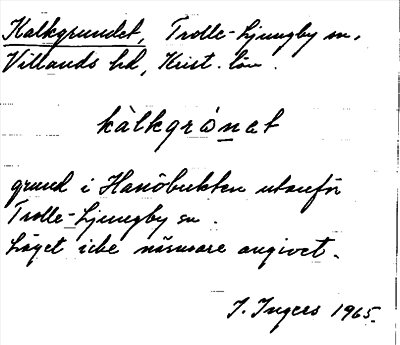 Kalkgrundet, Trolle-Ljungby sn,
Villands hd, Krist. län.
kàlkgrònet
grund i Hanöbukten utanför
Trolle-Ljungby sn.
Läget icke närmare angivet.
I. Ingers 1965.